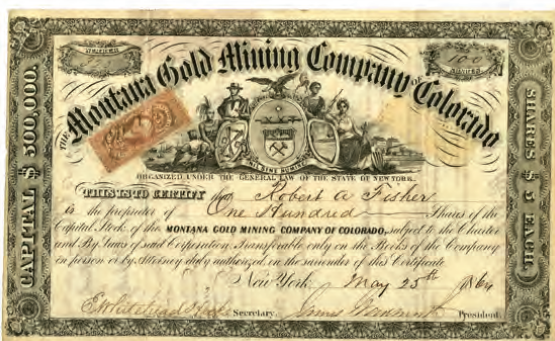 NUMBER
SHARES
THE Montana Gold Mining Company OF Colorado
CAPITAL $ 500,000.
SHARES $ 1 EACH.
ORGANIZED UNDER THE GENERAL LAW OF THE STATE OF NEW YORK.
THIS IS TO CERTIFY that Robert A Fisher
is the proprietor of One Hundred Shares of the
Capital Stock of the MONTANA GOLD MINING COMPANY OF COLORADO, subject to the Charter
and By Laws of said Corporation, Transferable only on the Books of the Company
in person or by Attorney duly authorized, on the surrender of this Certificate.
New York, May 25th 1864
Secretary. President.